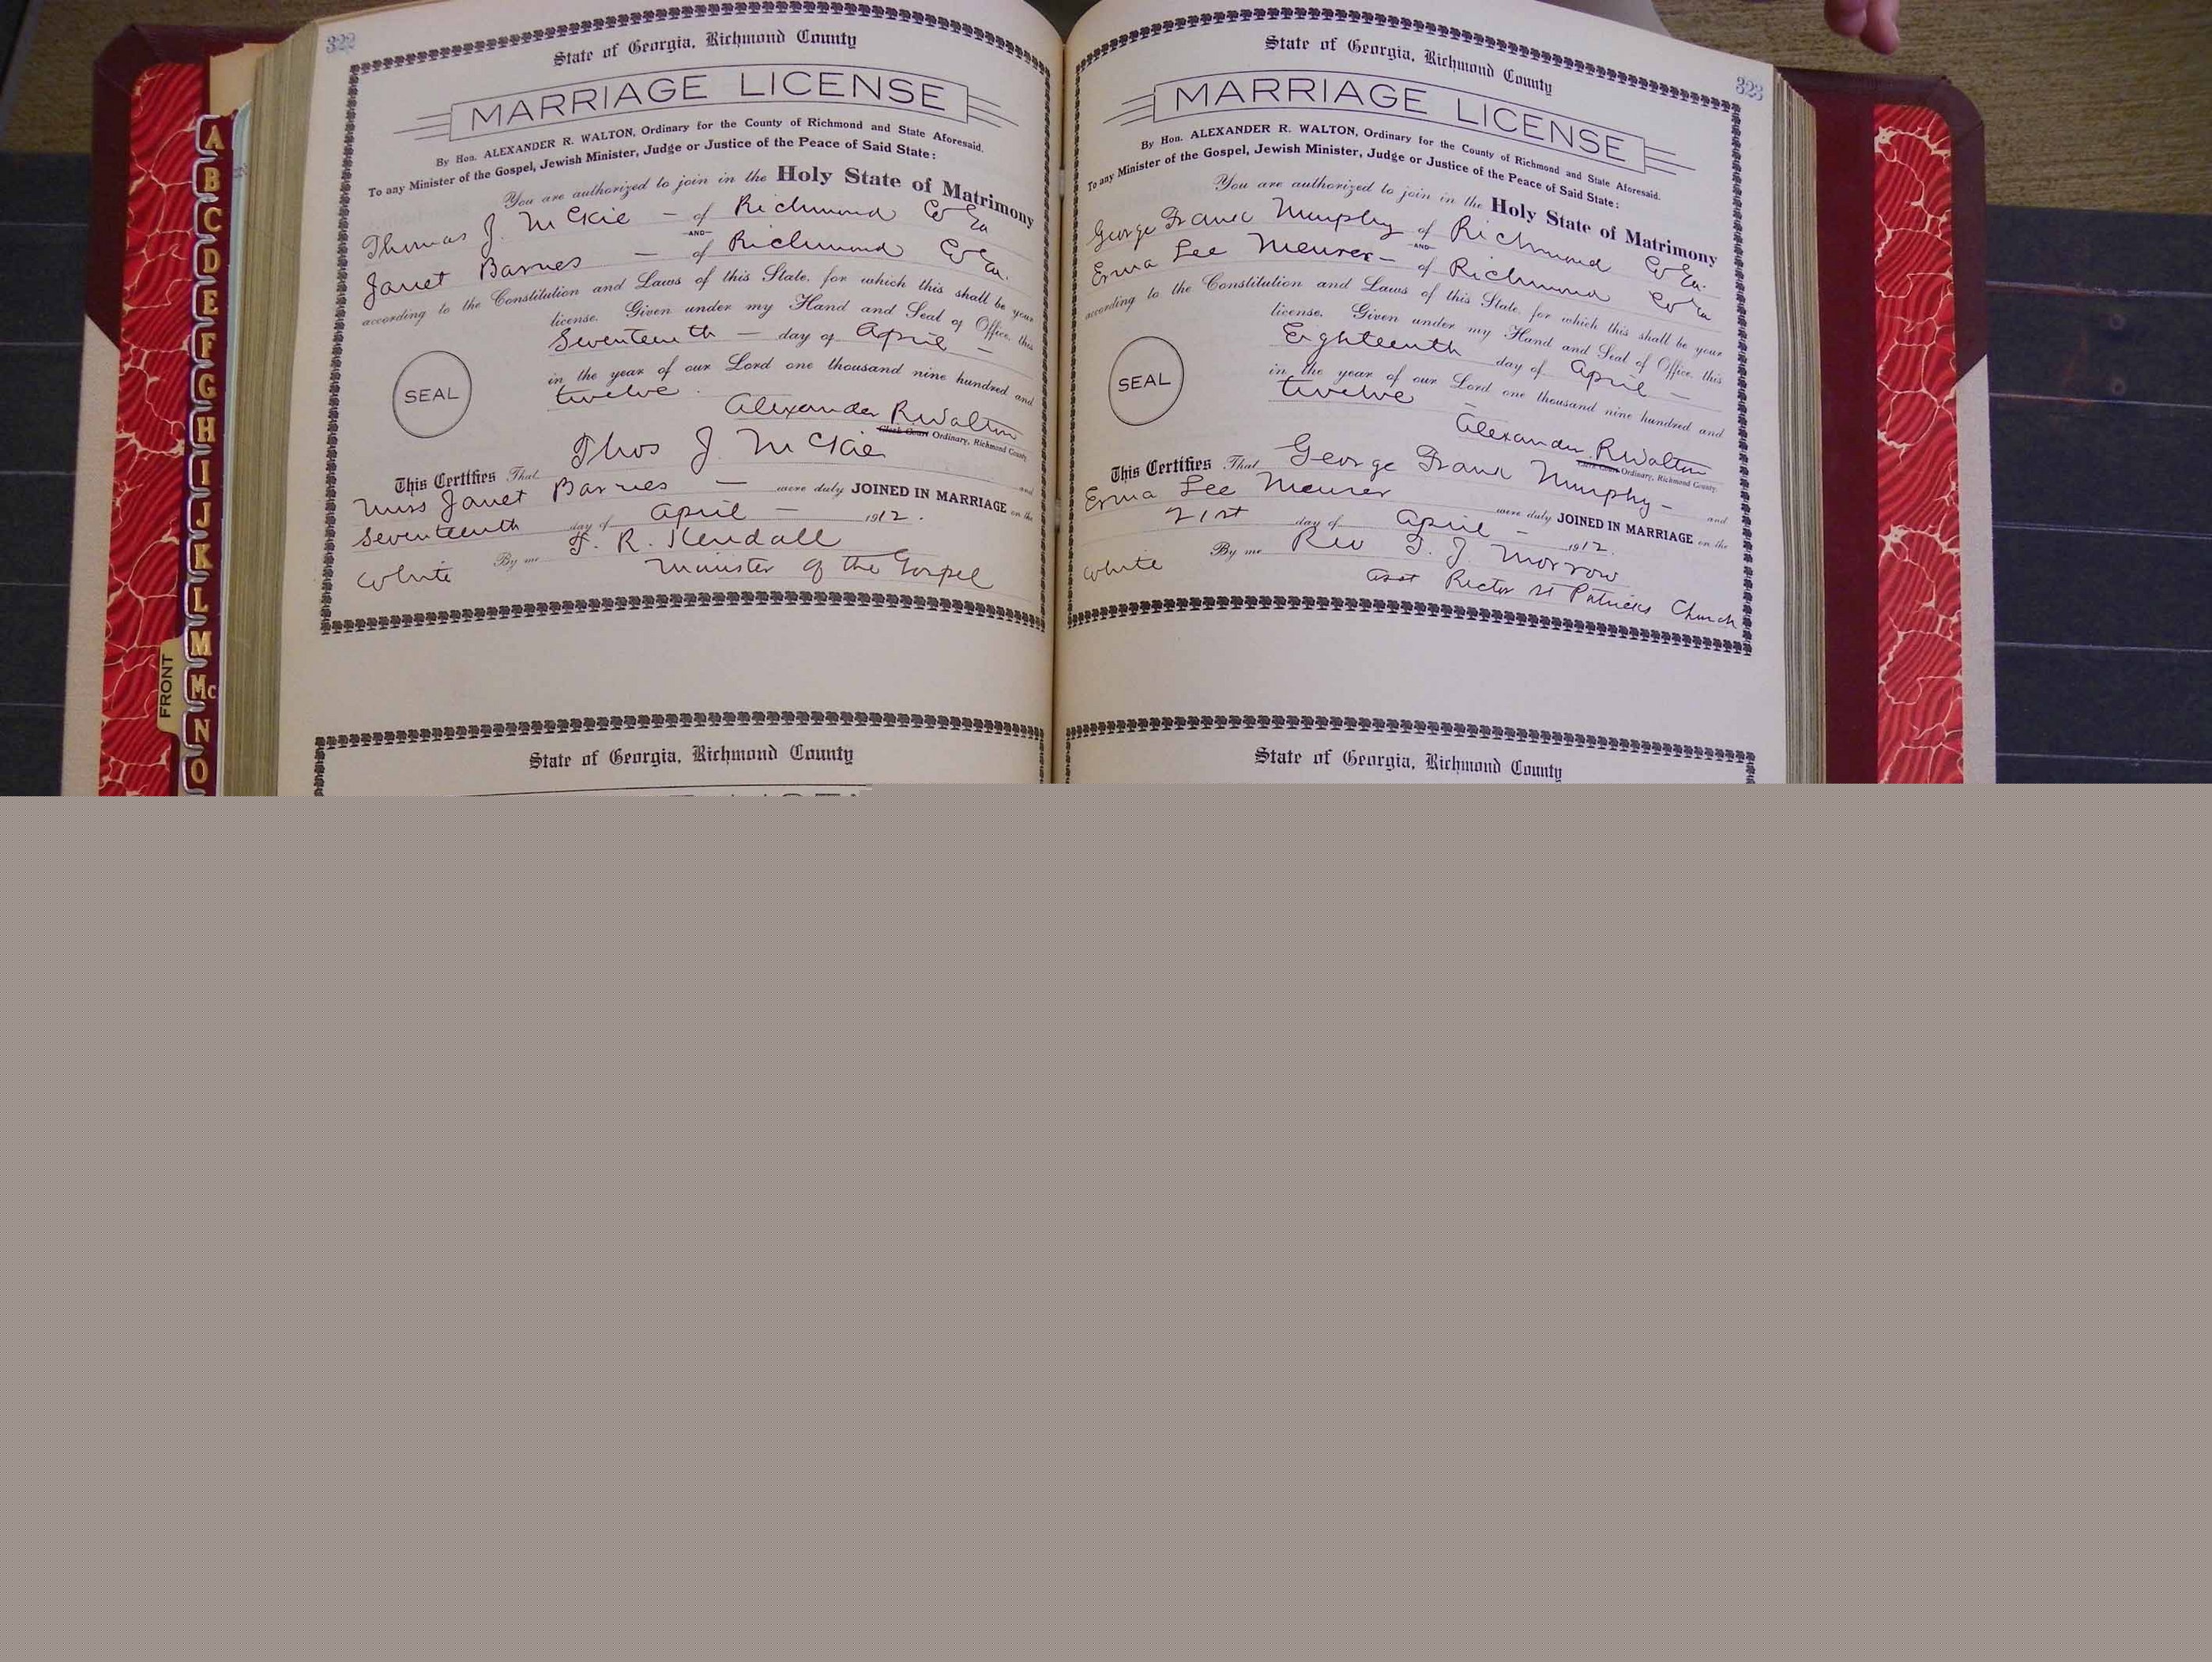 322
State of Georgia, Richmond County
MARRIAGE LICENSE
By Hon. ALEXANDER R. WALTON, Ordinary for the County of Richmond and State Aforesaid.
To any Minister of the Gospel, Jewish Minister, Judge or Justice of the Peace of Said State:
You are authorized to join in the Holy State of Matrimony
Thomas J. McKie — of Richmond Co Ga
—AND—
Janet Barnes — of Richmond Co Ga.
according to the Constitution and Laws of this State, for which this shall be your
license. Given under my Hand and Seal of Office, this
Seventeenth — day of April —
in the year of our Lord one thousand nine hundred and
twelve.
SEAL
Alexander R Walton
Clerk Court Ordinary, Richmond County
This Certifies That Thos J. McKie and
Miss Janet Barnes — were duly JOINED IN MARRIAGE on the
Seventeenth day of April — 1912.
By me F. R. Kendall
White Minister of the Gospel
State of Georgia, Richmond County
323
State of Georgia, Richmond County
MARRIAGE LICENSE
By Hon. ALEXANDER R. WALTON, Ordinary for the County of Richmond and State Aforesaid.
To any Minister of the Gospel, Jewish Minister, Judge or Justice of the Peace of Said State:
You are authorized to join in the Holy State of Matrimony
George Frank Murphy of Richmond Co Ga.
—AND—
Erma Lee Meurer — of Richmond Co Ga
according to the Constitution and Laws of this State, for which this shall be your
license. Given under my Hand and Seal of Office, this
Eighteenth day of April —
in the year of our Lord one thousand nine hundred and
twelve —
SEAL
Alexander R Walton
Clerk Court Ordinary, Richmond County
This Certifies That George Frank Murphy — and
Erma Lee Meurer were duly JOINED IN MARRIAGE on the
21st day of April — 1912.
White By me Rev T. J. Morrow
asst Rector St Patricks Church
State of Georgia, Richmond County
A
B
C
D
E
F
G
H
I
J
K
L
M
Mc
N
O
FRONT